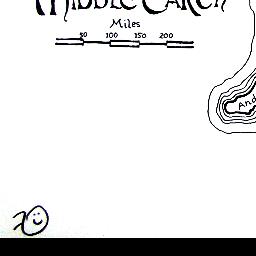 MIDDLE EARTH
Miles
50 100 150 200
And